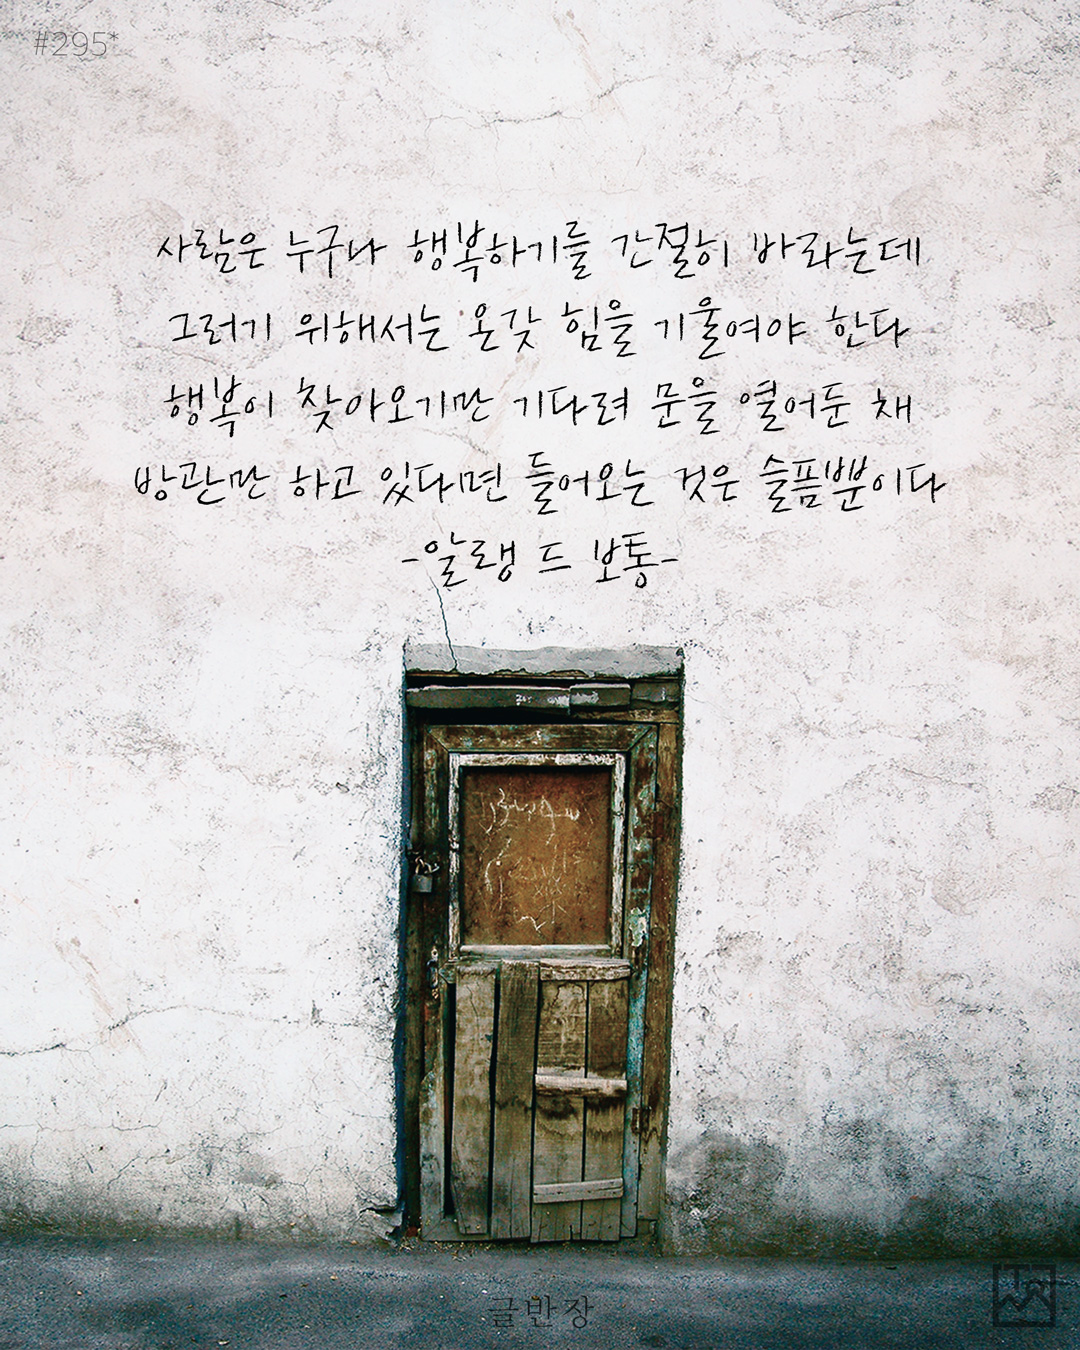 #295*
사람은 누구나 행복하기를 간절히 바라는데
그러기 위해서는 온갖 힘을 기울여야 한다
행복이 찾아오기만 기다려 문을 열어둔 채
방관만 하고 있다면 들어오는 것은 슬픔뿐이다
-알랭 드 보통-
글반장